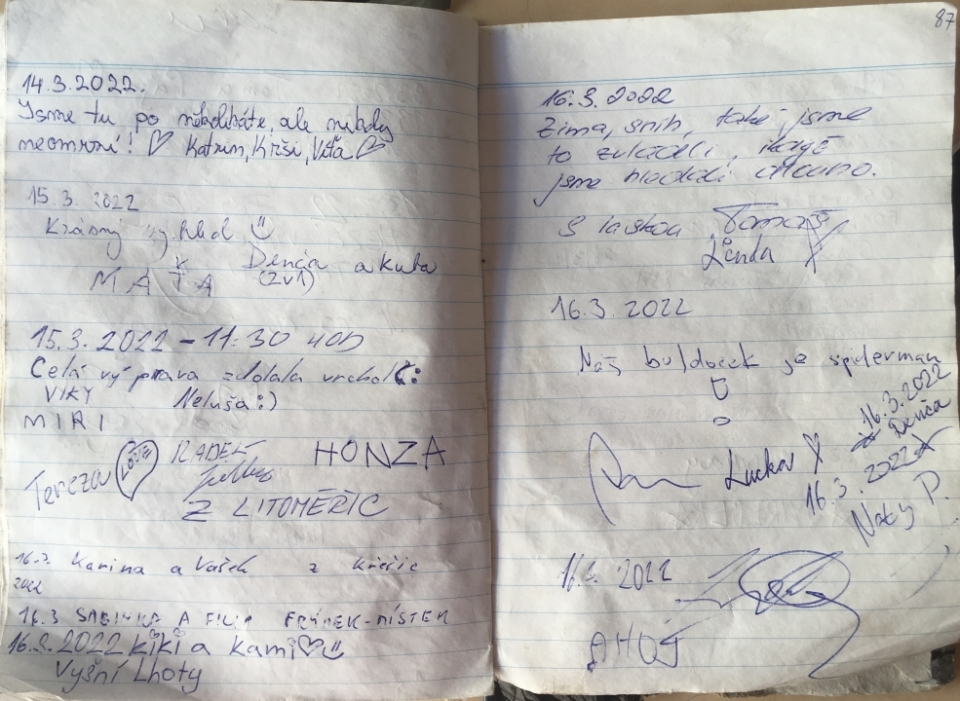 14.3.2022.
Jsme tu po několikáte, ale nikdy
neomrní! ♡ Katrin, Kriši, Víťa ♡
15.3.2022
Krásný výhled
Denča a kuba
(2v1)
MAŤA
15.3.2022 - 11:30 HOD
Celá výprava zdolala vrchol
VIKY Neluša:)
MIRI
Tereza RADEK HONZA
Z LITOMĚŘIC
16.3. Karina a Vašek z
2022
16.3 SABINKA A FILIP FRÝDEK-MÍSTEK
16.3.2022 Kiki a Kami♡
Vyšní Lhoty
87
16.3.2022
Zima, sníh, také jsme
to zvládli, i když
jsme hledali dlouho.
S láskou Tomáš
Lenda
16.3.2022
Náš buldoček je spiderman
16.3.2022
Denča
Lucka
16.3.2022
Naty P.
16.3.2022
AHOJ